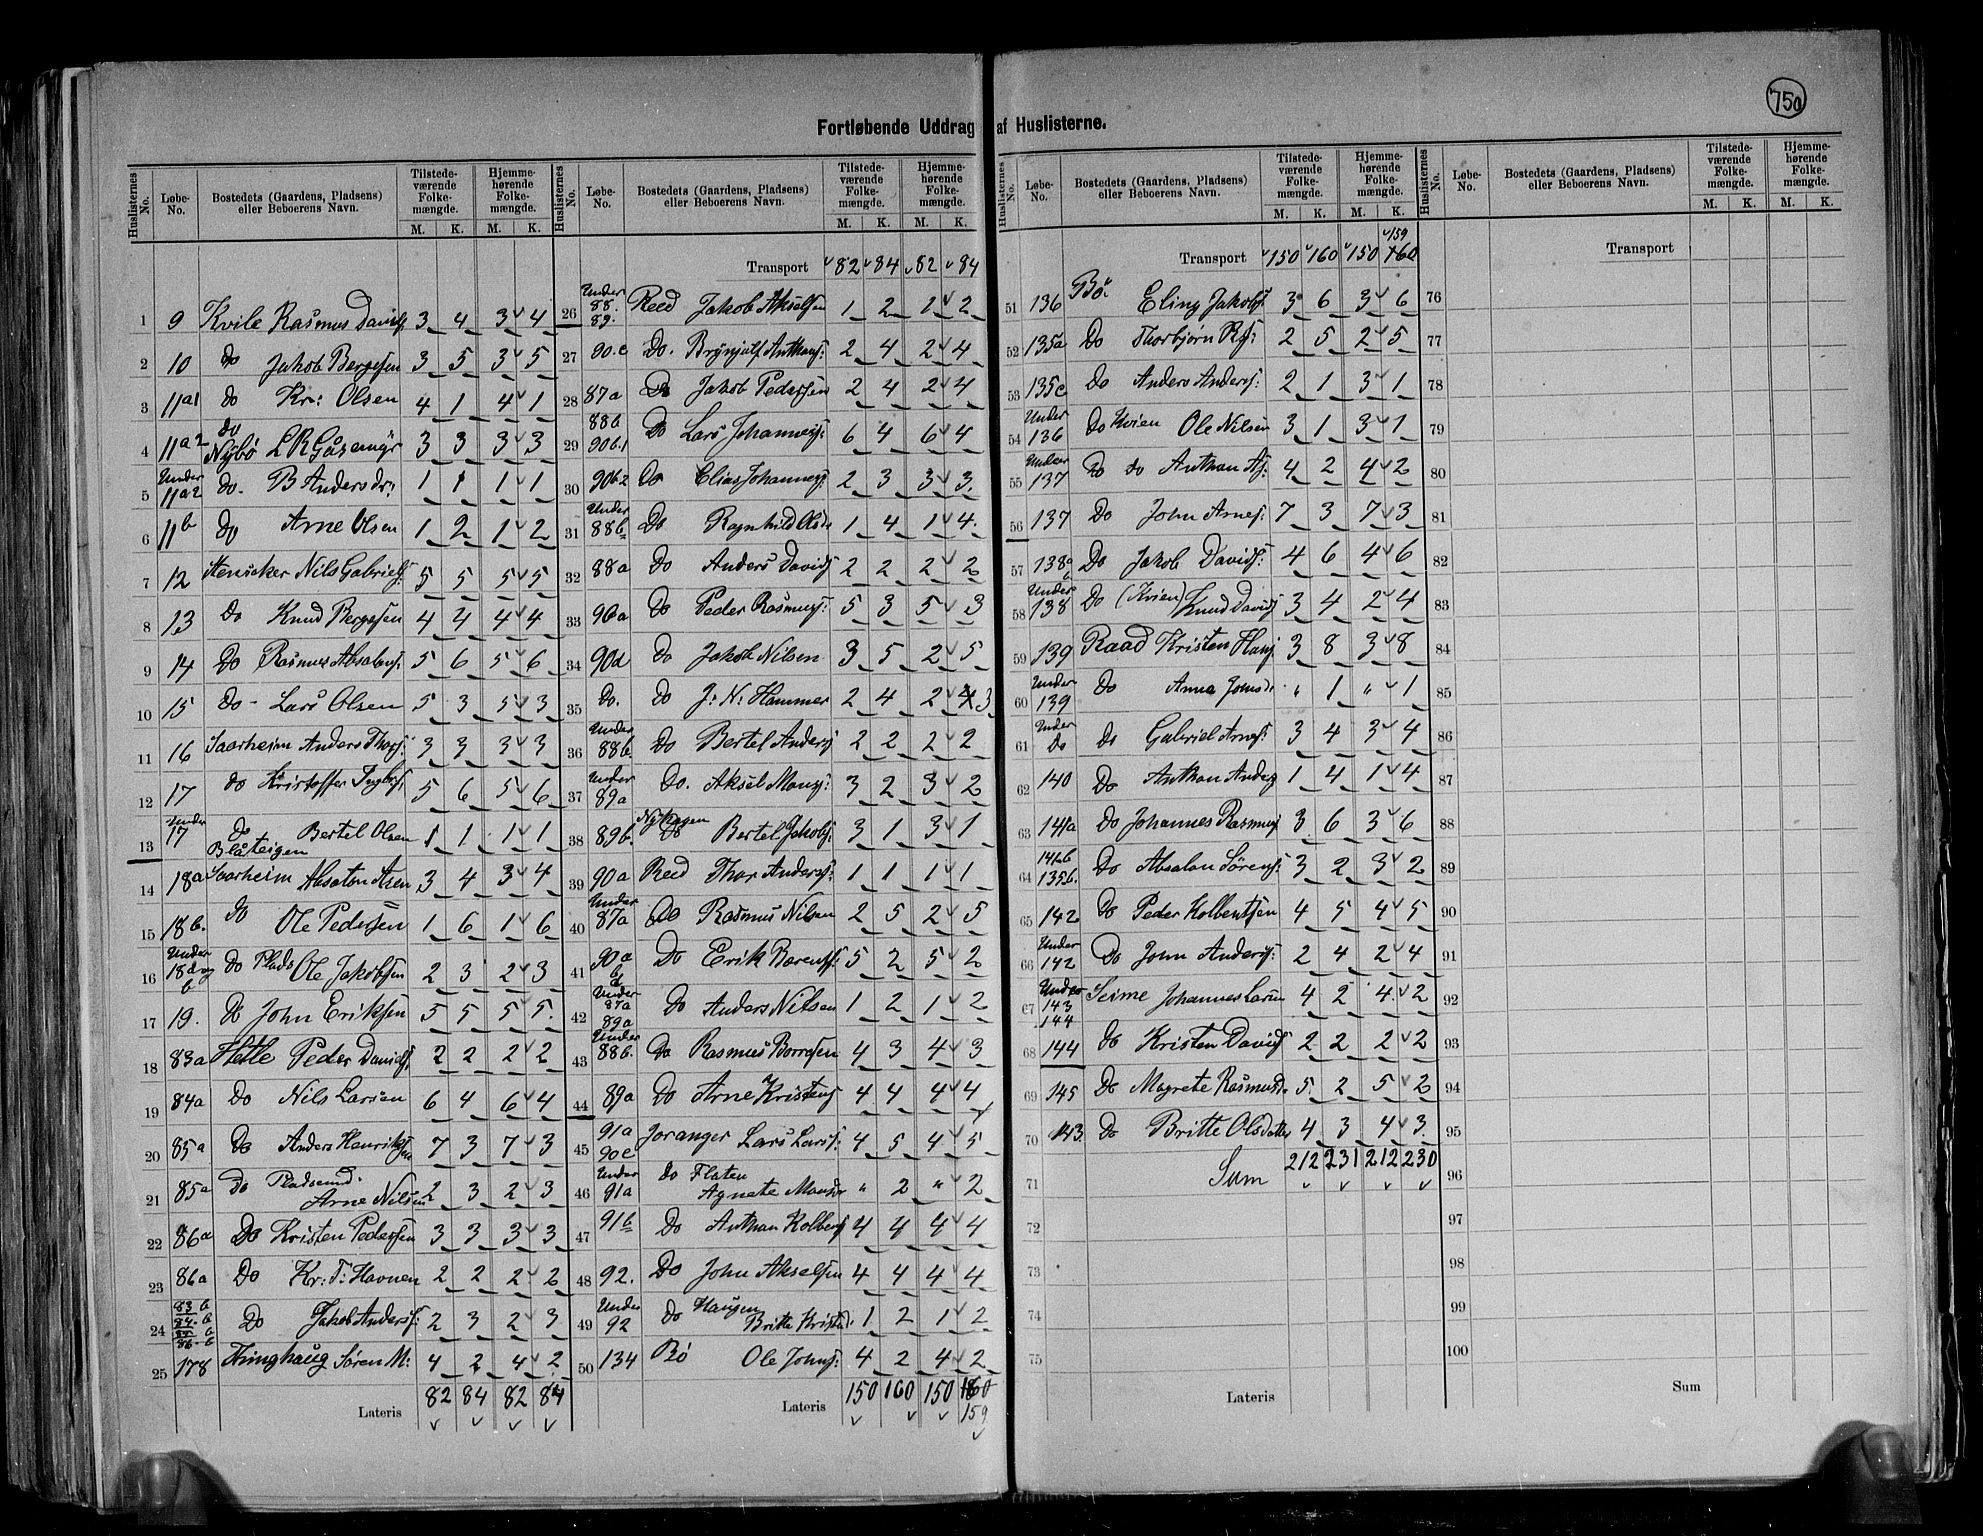 75a
Fortløbende Uddrag af Huslisterne.
Huslisternes No. Løbe-No. Bostedets (Gaardens, Pladsens) eller Beboerens Navn. Tilstedeværende Folkemængde. M. K. Hjemmehørende Folkemængde. M. K.
1 9 Kvile Rasmus Davids: 3 4 3 4
2 10 do Jakob Bergesen 3 5 3 5
3 11a1 do Kr: Olsen 4 1 4 1
4 11a2 do Nybø L R 3 3 3 3
5 Under 11a2 do. B Andersdr: 1 1 1 1
6 11b do Arne Olsen 1 2 1 2
7 12 Stensaker Nils Gabriels: 5 5 5 5
8 13 Do Knud Bergesen 4 4 4 4
9 14 Do Rasmus Absalons: 5 6 5 6
10 15 Do - Lars Olsen 5 3 5 3
11 16 Saarheim Anders Thors: 3 3 3 3
12 17 do Kristoffer 5 6 5 6
13 Under 17 Do Blåteigen Bertel Olsen 1 1 1 1
14 18a Saarheim Absalon 3 4 3 4
15 18b. Do Ole Pedersen 1 6 1 6
16 Under 18a og b Do Plads Ole Jakobsen 2 3 2 3
17 19. Do John Eriksen 5 5 5 5.
18 83a Hetle Peder Davids: 2 2 2 2
19 84a Do Nils Larsen 6 4 6 4
20 85a Do Anders Henriksen 7 3 7 3
21 85a Do Pladsmd. Arne Nilsen 2 3 2 3
22 86a Do Kristen Pedersen 3 3 3 3
23 86a Do Kr: T: Havnen 2 2 2 2
24 83 b 84 b 85 b 86 b Do Jakob Anders: 2 3 2 3
25 178 Kringhaug Søren M: 4 2 4 2
Lateris 82 84 82 84
Huslisternes No. Løbe-No. Bostedets (Gaardens, Pladsens) eller Beboerens Navn. Tilstedeværende Folkemængde. M. K. Hjemmehørende Folkemængde. M. K.
Transport 82 84 82 84
26 Under 88. 89. Reed Jakob Akselsen 1 2 1 2
27 90.c Do. Brynjulf Anthons: 2 4 2 4
28 87a Do Jakob Pedersen 2 4 2 4
29 88b 90b.1 Do Lars Johannes: 6 4 6 4
30 90b2 Do Elias Johannes: 2 3 3 3.
31 Under 88b Do Ragnhild Olsdr 1 4 1 4.
32 88a Do Anders Davids 2 2 2 2
33 90a Do Peder Rasmus: 5 3 5 3
34 90d Do Jakob Nilsen 3 5 2 5
35 Do. Do J: N: Hammer 2 4 2 4 3
36 Under 88b. Do Bertel Anders: 2 2 2 2
37 Under 89a Do. Aksel Mons: 3 2 3 2
38 89b. Nyhagen Do Bertel Jakobs: 3 1 3 1
39 90a Reed Thor Anders: 1 1 1 1
40 Under 87a Do Rasmus Nilsen 2 5 2 5
41 90a b d Do Erik 5 2 5 2
42 Under 87a 89a Do Anders Nilsen 1 2 1 2
43 Under 88b. Do Rasmus 4 3 4 3
44 89a Do Arne Kristens 4 4 4 4
45 91a 90e Joranger Lars Lars: 4 5 4 5
46 Under 91a do Flaten Agnete Monsdr " 2 " 2
47 91b Do Anthon Kolbens 4 4 4 4
48 92. Do John Akselsen 4 4 4 4
49 Under 92 Do Haugen Britte Kristensd: 1 2 1 2
50 134 Bø Ole Johns: 4 2 4 2
Lateris 150 160 150 160
159
Huslisternes No. Løbe-No. Bostedets (Gaardens, Pladsens) eller Beboerens Navn. Tilstedeværende Folkemængde. M. K. Hjemmehørende Folkemængde. M. K.
159
Transport 150 160 150 160
51 136 Bø Eling Jakobs: 3 6 3 6
52 135a Do Thorbjørn Rs: 2 5 2 5
53 135c Do Anders Anders: 2 1 3 1
54 Under 136 Do Kvien Ole Nilsen 3 1 3 1
55 Under 137 Do do Anthon As: 4 2 4 2
56 137 Do John Arnes: 7 3 7 3
57 138a b Do Jakob Davids: 4 6 4 6
58 Under 138 Do (Kvien) Knud Davids 3 4 2 4
59 139 Raad Kristen Hans: 3 8 3 8
60 Under 139 Do Anna Johnsdr " 1 " 1
61 Under Do Do Gabriel Arnes: 3 4 3 4
62 140 Do Anthon Anders 1 4 1 4
63 141a Do Johannes Rasmus 3 6 3 6
64 141b 135b. Do Absalon Sørens: 3 2 3 2
65 142 Do Peder Kolbentsen 4 5 4 5
66 Under 142 Do John Anders: 2 4 2 4
67 Under 143 144 Seime Johannes Larsen 4 2 4 2
68 144 Do Kristen Davids 2 2 2 2
69 145 Do Magrete Rasmusdr 5 2 5 2
70 143. Do Britte Olsdatter 4 3 4 3.
71 Sum 212 231 212 230
72
73
74
75
Lateris
Huslisternes No. Løbe-No. Bostedets (Gaardens, Pladsens) eller Beboerens Navn. Tilstedeværende Folkemængde. M. K. Hjemmehørende Folkemængde. M. K.
Transport
76
77
78
79
80
81
82
83
84
85
86
87
88
89
90
91
92
93
94
95
96
97
98
99
100
Sum